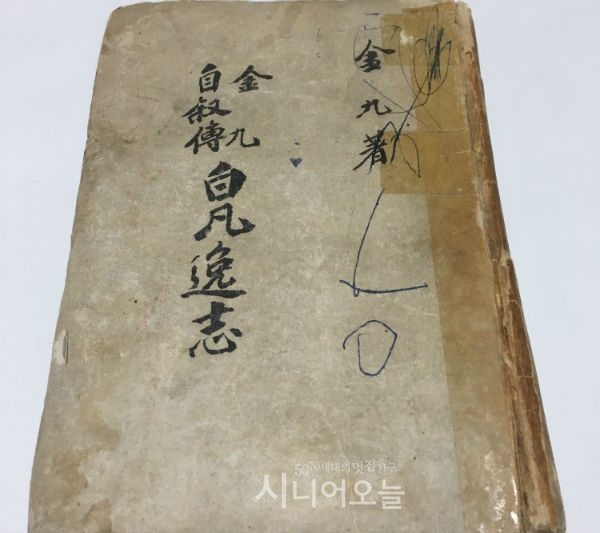 金九著
金九
自叙傳
白凡逸志
50+세대의 멋진 친구
시니어오늘